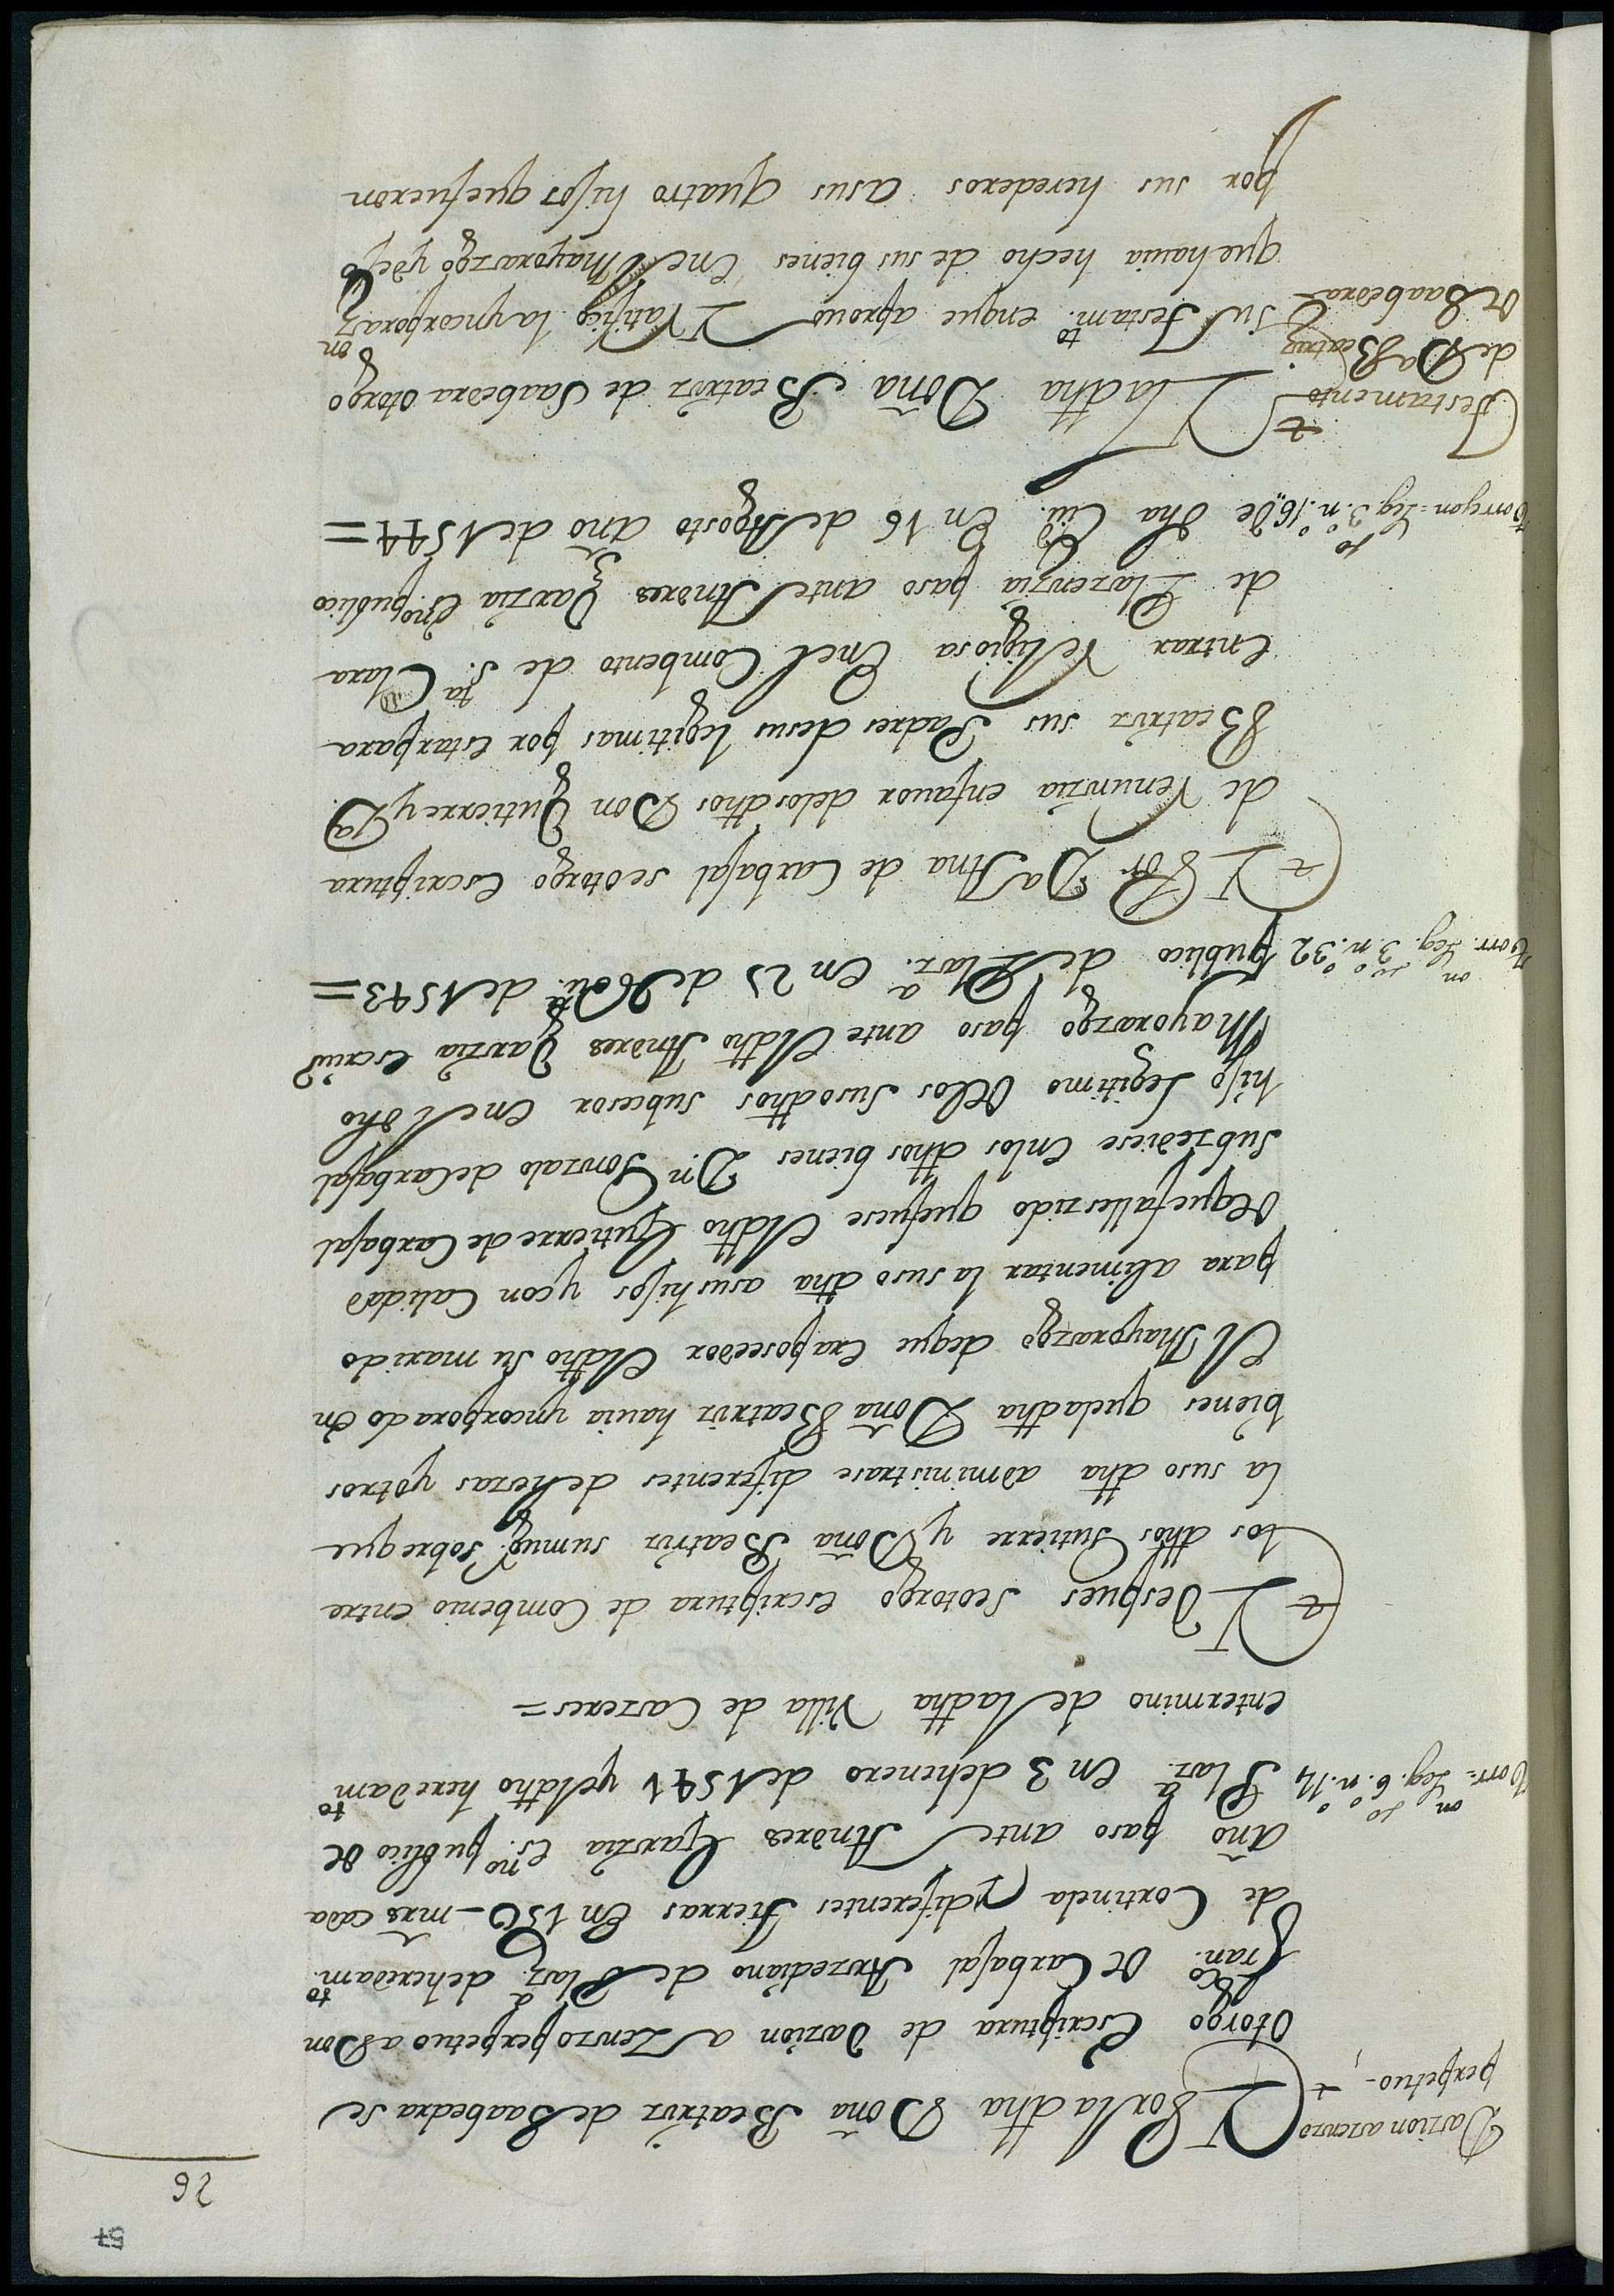 57
26
Dazion azenzo
perpetuo
Y Por la dha Doña Beatriz de Saabedra se
otorgo Escriptura de Dazion a Zenzo perpetuo a Don
Fran.co de Carbajal Arzediano de Plaz.a de heredam.to
de Cortinela y diferentes tierras En 150 mrs cada
año paso ante Andres Garzia es.no publico de
Torr.on = Leg.o 6.o n.o 14
Plaz.a en 3 de henero de 1541 y el dho heredam.to
en termino de la dha Villa de Cazeres =
Y Despues se otorgo escriptura de Combenio entre
los dhos Gutierre y Doña Beatriz su mug.r sobre que
la suso dha administrase diferentes dehezas y otros
bienes que la dha Doña Beatriz hauia yncorporado en
el Mayorazgo de que era poseedor el dho su marido
para alimentar la suso dha a sus hijos y con Calidad
de que fallezido que fuese el dho Gutierre de Carbajal
subzediese en los dhos bienes D.n Gonzalo de Carbajal
hijo legitimo de los suso dhos subcesor en el dho
Mayorazgo paso ante el dho Andres Garzia escriu.o
Torr.on Leg.o 3.o n.o 32
publico de Plaz.a en 25 de de 1543 =
Y Por D.a Ana de Carbajal se otorgo Escriptura
de Renunzia en fauor de los dhos Don Gutierre y D.a
Beatriz sus Padres de sus legitimas por estar para
entrar Religiosa En el Combento de S.ta Clara
de Plazenzia paso ante Andres Garzia es.no publico
Torrejon = Leg.o 3. n.o 16
de dha Ciu.d En 16 de Agosto año de 1544 =
Testamento
de D.a Beatriz
de Saabedra
Y la dha Doña Beatriz de Saabedra otorgo
su Testam.to en que aprouo Y Ratifico la yncorporaz.on
que hauia hecho de sus bienes en el Mayorazgo y dejo
por sus herederos a sus quatro hijos que fueron